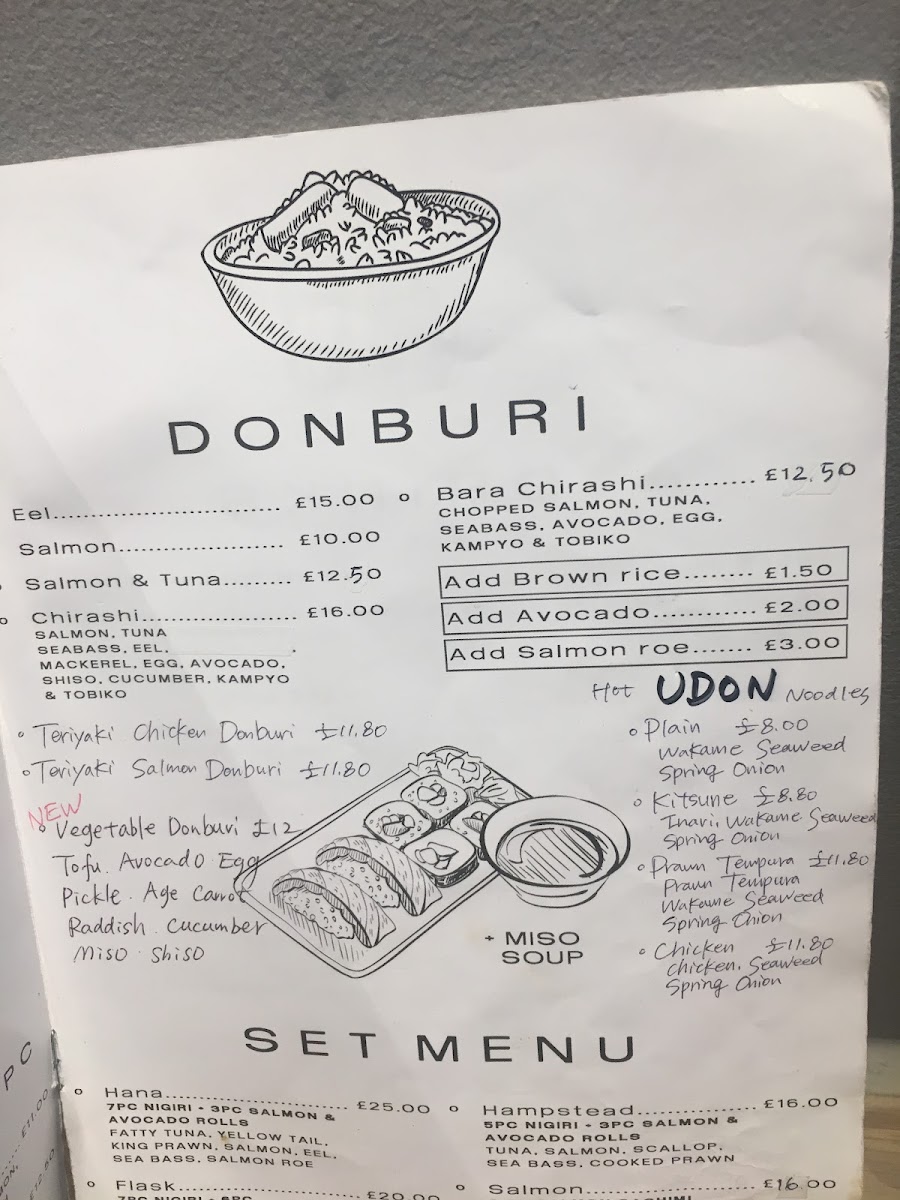 DONBURI
Eel............................. £15.00
Salmon..................... £10.00
Salmon & Tuna......... £12.50
Chirashi.................... £16.00
SALMON, TUNA
SEABASS, EEL,
MACKEREL, EGG, AVOCADO,
SHISO, CUCUMBER, KAMPYO
& TOBIKO
Teriyaki Chicken Donburi £11.80
Teriyaki Salmon Donburi £11.80
NEW
Vegetable Donburi £12
Tofu. Avocado Egg
Pickle. Age Carrot
Raddish. Cucumber
Miso. Shiso
Bara Chirashi............ £12.50
CHOPPED SALMON, TUNA,
SEABASS, AVOCADO, EGG,
KAMPYO & TOBIKO
Add Brown rice........ £1.50
Add Avocado............ £2.00
Add Salmon roe....... £3.00
Hot UDON Noodles
Plain £8.00
Wakame Seaweed
Spring Onion
Kitsune £8.80
Inari, Wakame Seaweed
Spring Onion
Prawn Tempura £11.80
Prawn Tempura
Wakame Seaweed
Spring Onion
Chicken £11.80
chicken, Seaweed
Spring Onion
+ MISO
SOUP
SET MENU
Hana.......................... £25.00
7PC NIGIRI + 3PC SALMON &
AVOCADO ROLLS
FATTY TUNA, YELLOW TAIL,
KING PRAWN, SALMON, EEL,
SEA BASS, SALMON ROE
Flask........................... £20.00
Hampstead.............. £16.00
5PC NIGIRI + 3PC SALMON &
AVOCADO ROLLS
TUNA, SALMON, SCALLOP,
SEA BASS, COOKED PRAWN
Salmon.................... £16.00
PC
£11.00
£12.50